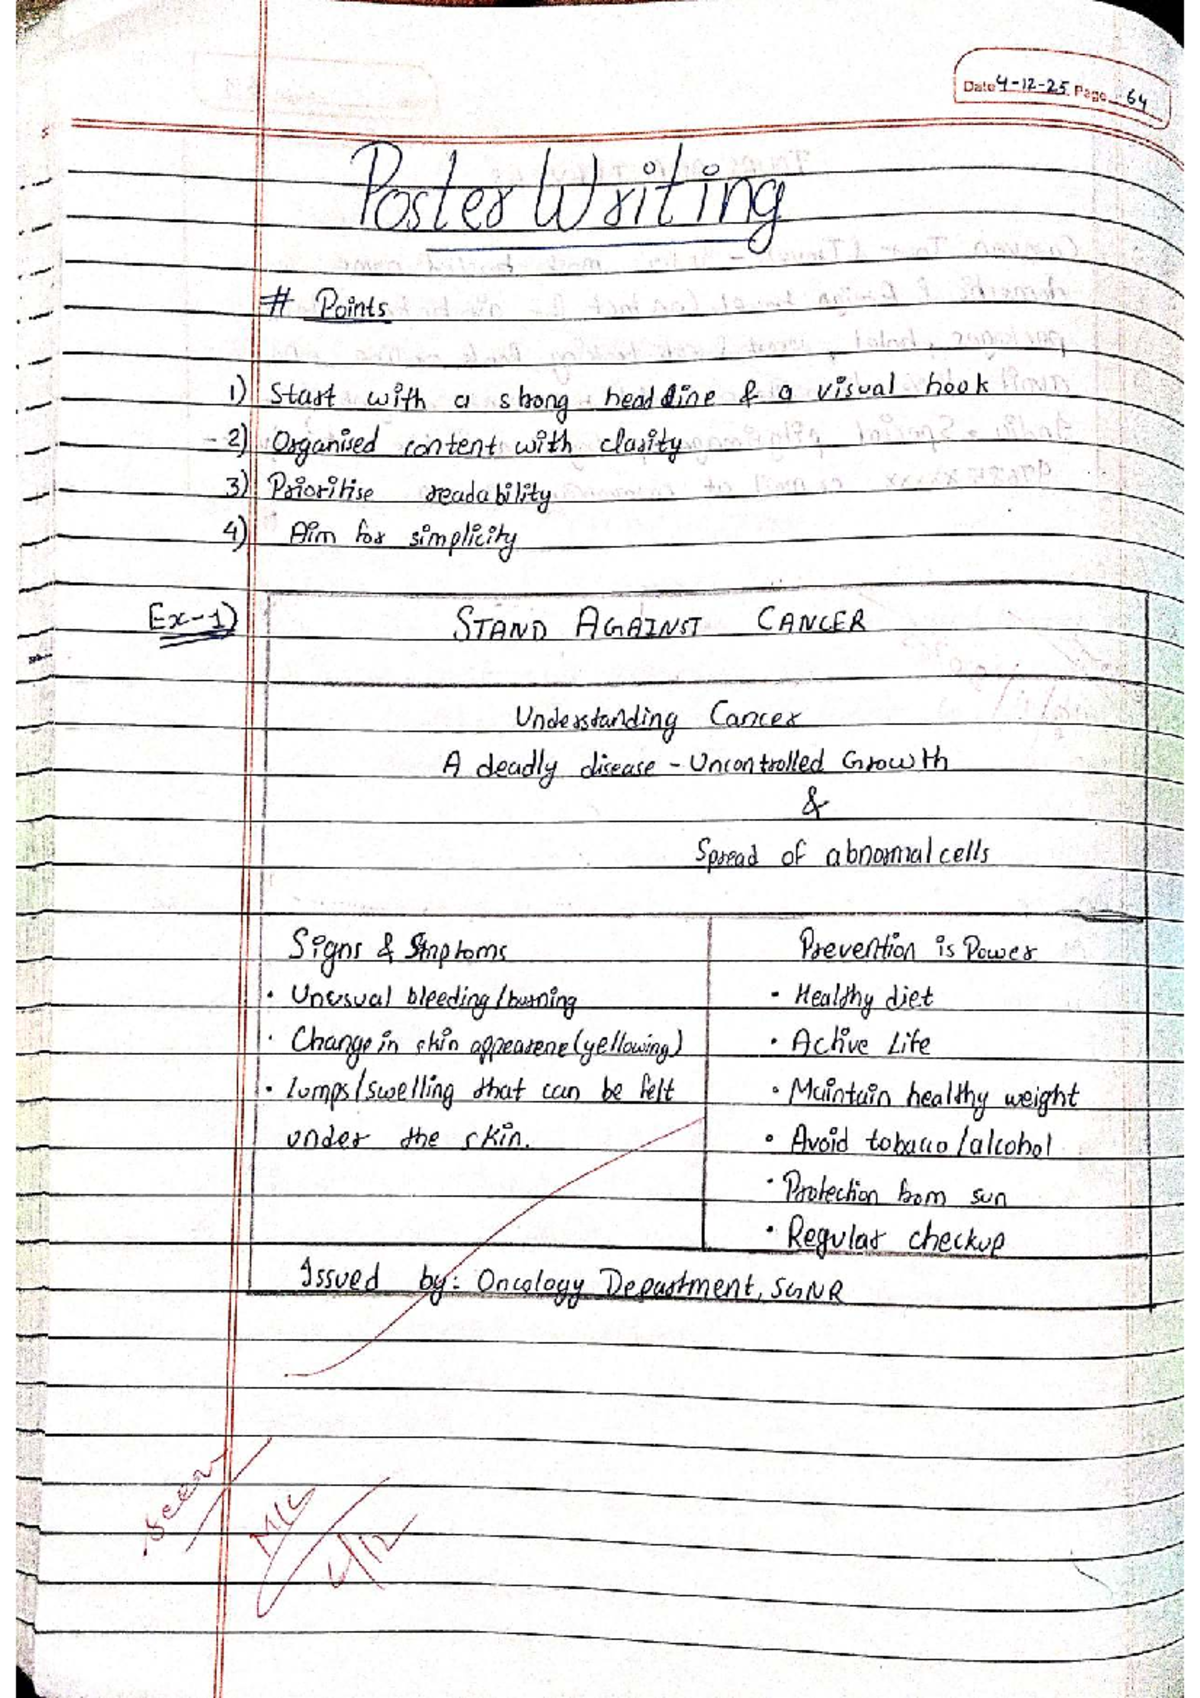 Date 4-12-25 Page 64
Poster Writing
# Points
1) Start with a strong headline & a visual hook
2) Organised content with clarity
3) Prioritise readability
4) Aim for simplicity
Ex-1)
STAND AGAINST CANCER
Understanding Cancer
A deadly disease - Uncontrolled Growth
&
Spread of abnormal cells
Signs & Smptoms
• Unusual bleeding/burning
• Change in skin appearene (yellowing)
• Lumps/swelling that can be felt
under the skin.
Prevention is Power
• Healthy diet
• Active Life
• Maintain healthy weight
• Avoid tobacco/alcohol
• Protection from sun
• Regular checkup
Issued by: Oncology Department, SGNR
seen
6/12